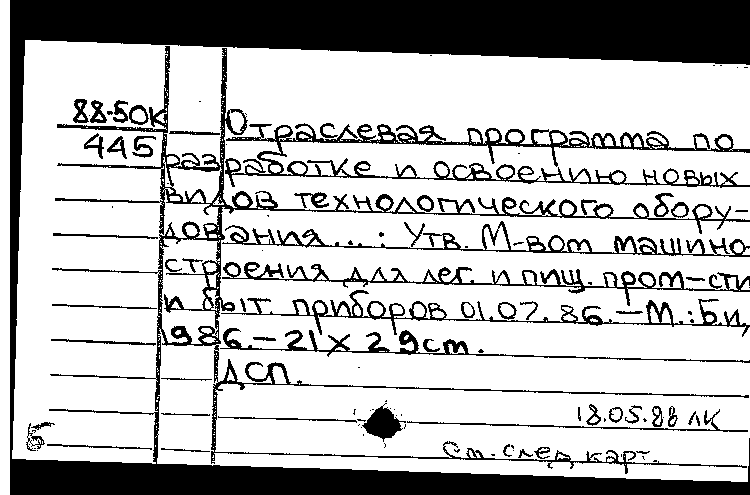 88-5ОК Отраслевая программа по
445 разработке и освоению новых
видов технологического обору-
дования...: Утв. М-вом машино-
строения для лег. и пищ. пром-сти
и быт. приборов 01.07.86.-М.:Б.и,
1986.-21 x 29см.
ДСП.
18.05.88 ЛК
Б См. след. карт.